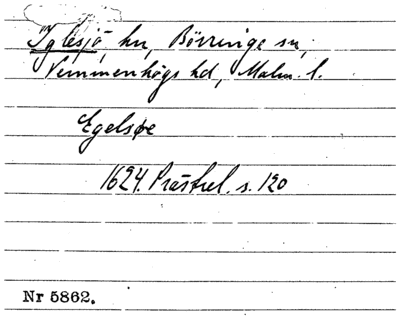 Iglesjö, hn, Börringe sn,
Vemmenhögs hd, Malm. l.
Egelsöe
1624. Prästrel. s. 120
Nr 5862.